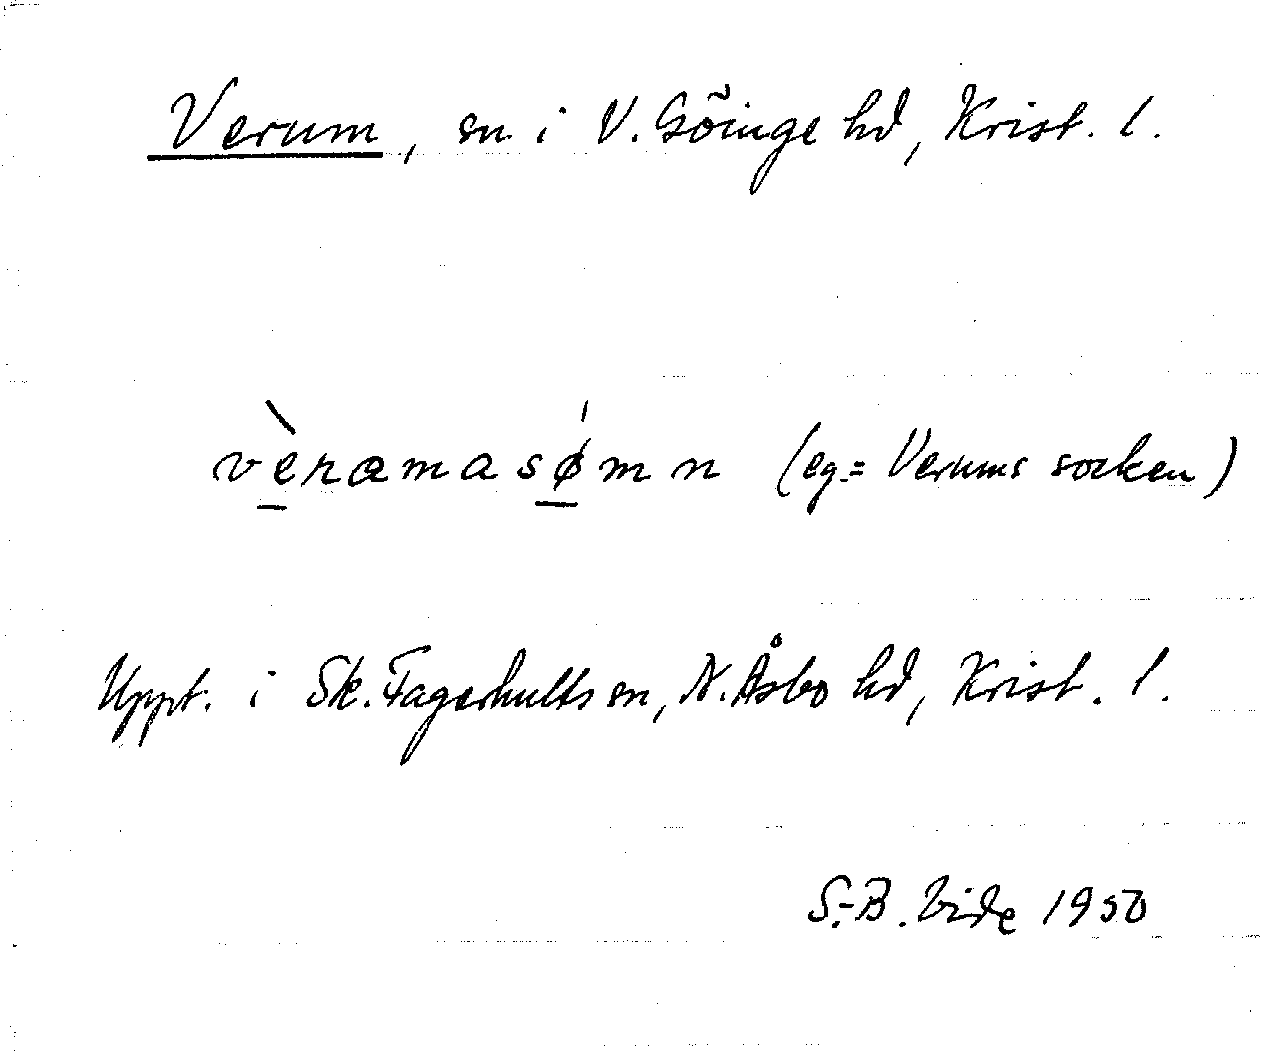 Verum, sn i V. Göinge hd, Krist. l.
vèramasǿmn (eg.= Verums socken)
Uppt. i Sk. Fagerhults sn, N. Åsbo hd, Krist. l.
S.-B. Vide 1950